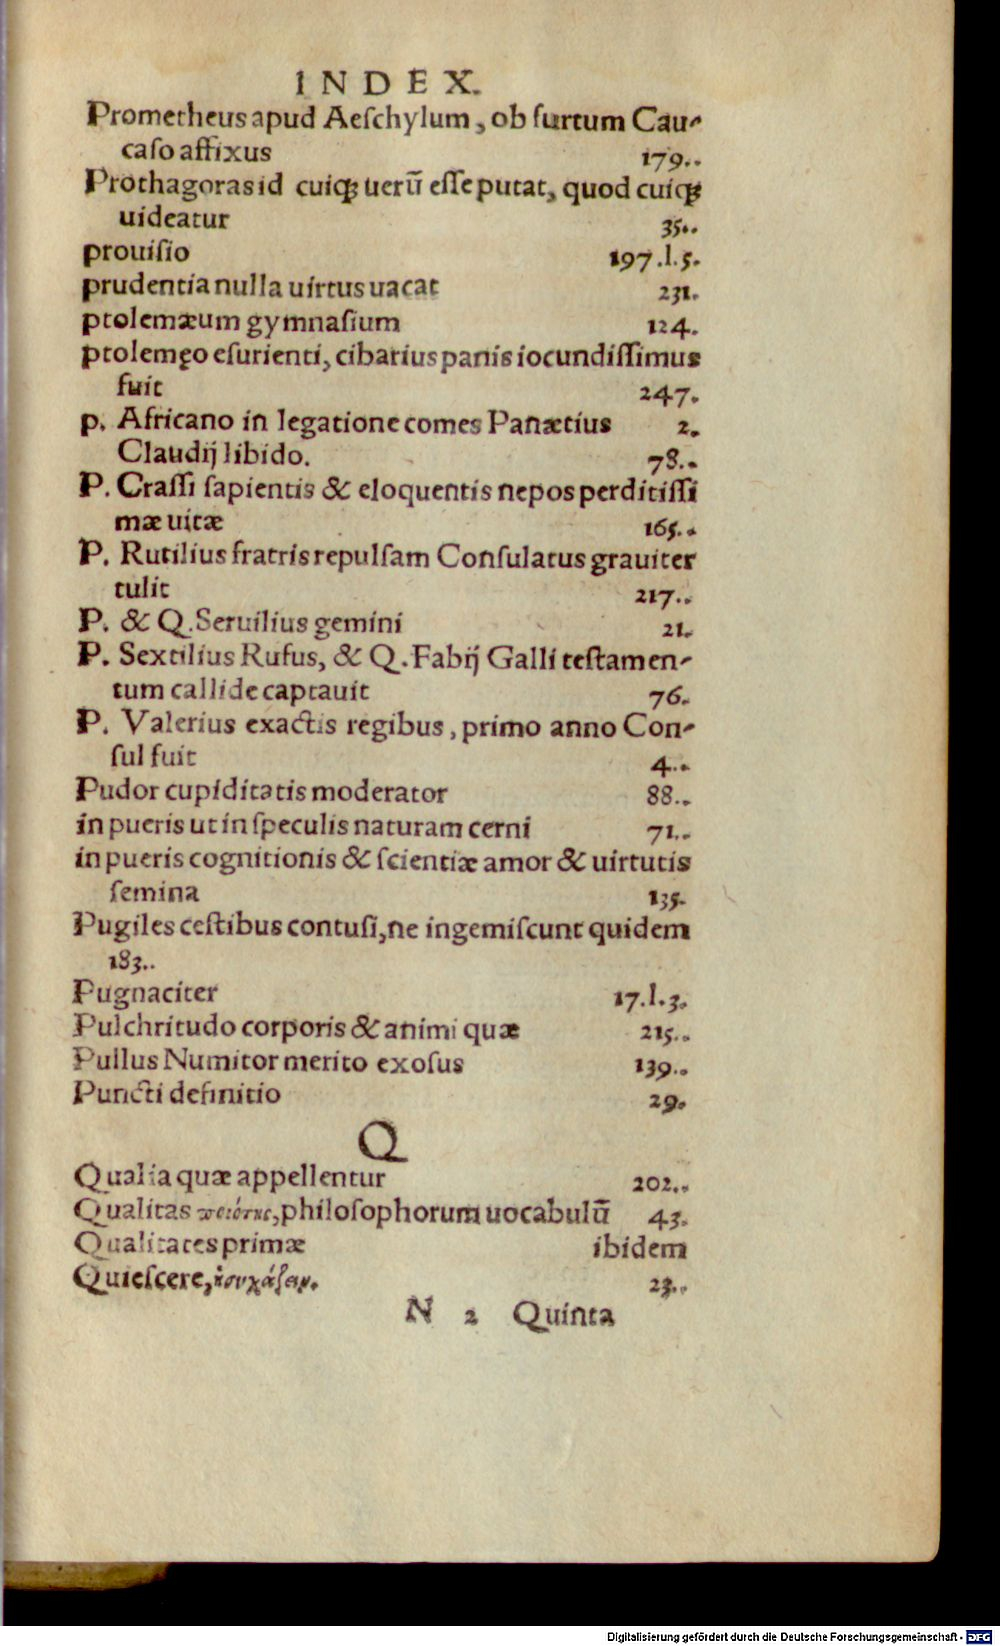 INDEX.
Prometheus apud Aeſchylum, ob furtum Cau-
caſo affixus 179..
Prothagoras id cuiqꝫ uerū eſſe putat, quod cuiqꝫ
uideatur 35..
prouiſio 197.l.5.
prudentia nulla uirtus uacat 231.
ptolemæum gymnaſium 124.
ptolemęo eſurienti, cibarius panis iocundiſſimus
fuit 247.
p. Africano in legatione comes Panætius 2.
Claudij libido. 78..
P. Craſſi ſapientis & eloquentis nepos perditiſſi
mæ uitæ 165..
P. Rutilius fratris repulſam Conſulatus grauiter
tulit 217..
P. & Q. Seruilius gemini 21.
P. Sextilius Rufus, & Q. Fabij Galli teſtamen-
tum callide captauit 76.
P. Valerius exactis regibus, primo anno Con-
ſul fuit 4..
Pudor cupiditatis moderator 88..
in pueris ut in ſpeculis naturam cerni 71..
in pueris cognitionis & ſcientiæ amor & uirtutis
ſemina 135.
Pugiles ceſtibus contuſi, ne ingemiſcunt quidem
183..
Pugnaciter 17.l.3.
Pulchritudo corporis & animi quæ 215..
Pullus Numitor merito exoſus 139..
Puncti definitio 29.
Q
Qualia quæ appellentur 202..
Qualitas ποιότης, philoſophorum uocabulū 43.
Qualitates primæ ibidem
Quieſcere, ἡσυχάζειν. 23..
N 2 Quinta
Digitalisierung gefördert durch die Deutsche Forschungsgemeinschaft - DFG